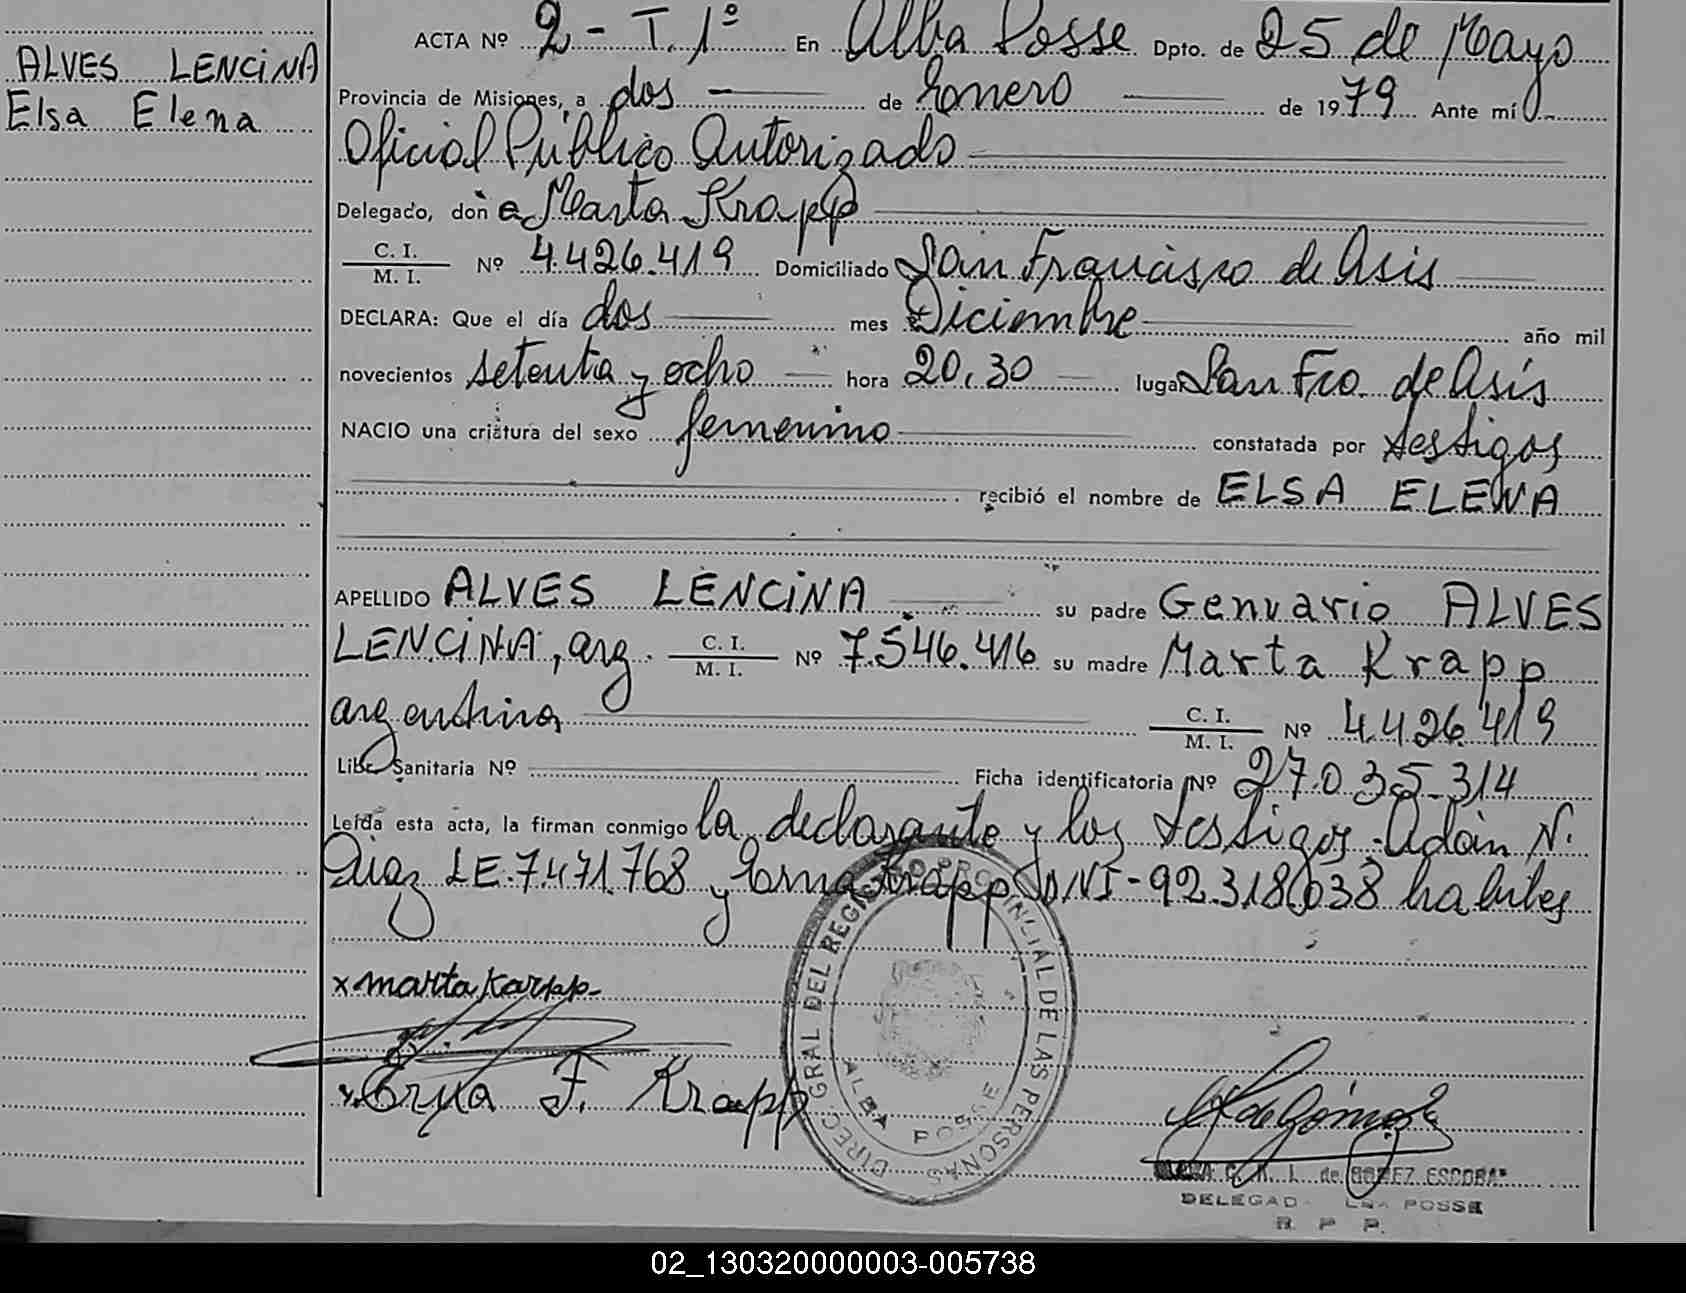 ALVES LENCINA
Elsa Elena
ACTA Nº 2 - T. 1º En Alba Posse Dpto. de 25 de Mayo
Provincia de Misiones, a dos de Enero de 1979 Ante mí
Oficial Público Autorizado
Delegado, don a Marta Krapp
C. I.
M. I. Nº 4.426.419 Domiciliado San Francisco de Asis
DECLARA: Que el día dos mes Diciembre año mil
novecientos setenta y ocho hora 20,30 lugar San Fco. de Asís
NACIO una criatura del sexo femenino constatada por testigos
recibió el nombre de ELSA ELENA
APELLIDO ALVES LENCINA su padre Genuario ALVES
LENCINA, arg. C. I.
M. I. Nº 7.546.416 su madre Marta Krapp
argentina C. I.
M. I. Nº 4.426.419
Libr. Sanitaria Nº Ficha identificatoria Nº 27.035.314
Leída esta acta, la firman conmigo la declarante y los testigos Adán N.
Diaz LE.7.471.768 y Erna Krapp DNI-92.318.038 habiles
x marta karpp-
x Erna F. Krapp
DIREC. GRAL DEL REGISTRO PROVINCIAL DE LAS PERSONAS
ALBA POSSE
de GOMEZ ESCOBAR
DELEGAD POSSE
R. P. P.
02_130320000003-005738